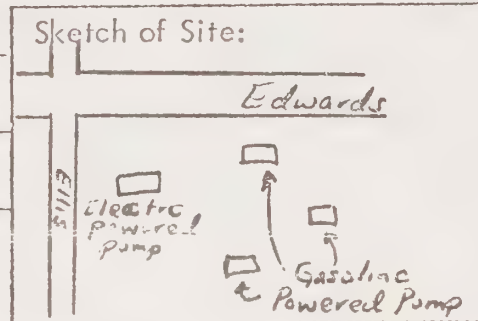 Sketch of Site:
Edwards
Ellis
Electric
powered
pump
Gasoline
Powered Pump